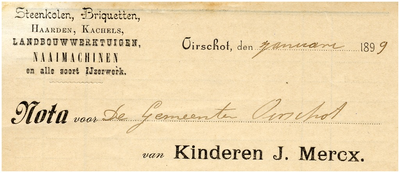 Steenkolen, Briquetten,
HAARDEN, KACHELS,
LANDBOUWWERKTUIGEN,
NAAIMACHINEN
en alle soort IJzerwerk.
Oirschot, den januari 1899
Nota voor De Gemeenten Oirschot
van Kinderen J. Mercx.